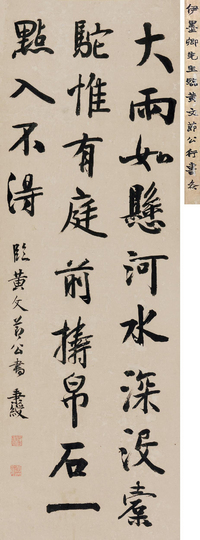 大雨如懸河水深没橐
駝惟有庭前擣帛石一
點入不得
臨黄文節公書 秉綬
伊墨卿先生臨黄文節公行書真